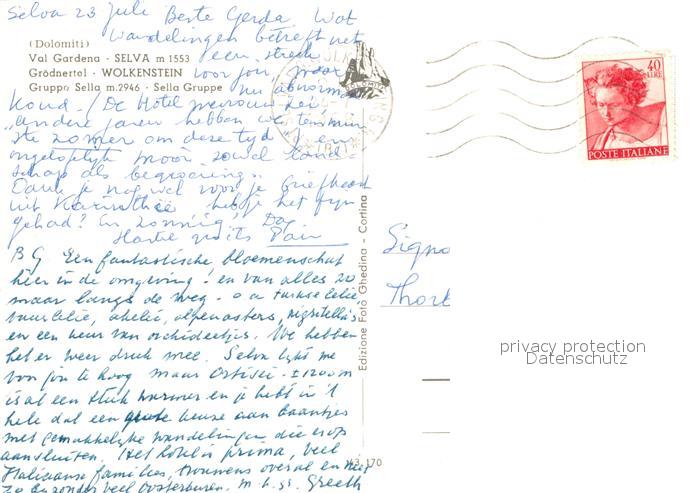 Selva 23 Juli Beste Gerda, Wat
wandelingen betreft net
een streek
voor jou, maar
nu abnormaal
koud. De Hotel mevrouw zei:
"andere jaren hebben we tenminste
zomer om deze tijd"! een
ongelofelijk mooi zowel landschap
als begroeiing.
Dank je nog wel voor je briefkaart
uit Karinthië heb je het fijn
gehad? En zonnig? Dag
Hartel groets
(Dolomiti)
Val Gardena · SELVA m 1553
Grödnertal · WOLKENSTEIN
Gruppo Sella m.2946 · Sella Gruppe
B G Een fantastische bloemenschat
hier in de omgeving! en van alles zo
maar langs de weg - o a turkse lelie,
vuurlelie, akelei, alpenasters, nigritella's
en een keur van orchideetjes. We hebben
het er weer druk mee. Selva lijkt me
voor jou te hoog maar Ortisei - ± 1200 m
is al een stuk warmer en je hebt in 't
hele dal een grote keuze aan baantjes
met gemakkelijke wandelingen die erop
aansluiten. Het hotel is prima, veel
Italiaanse families, trouwens overal en niet
zo bijzonder veel oosterburen. m. h. gr. Greeth
Edizione Foto Ghedina - Cortina
170
40
LIRE
POSTE ITALIANE
Signo
Thor
privacy protection
Datenschutz